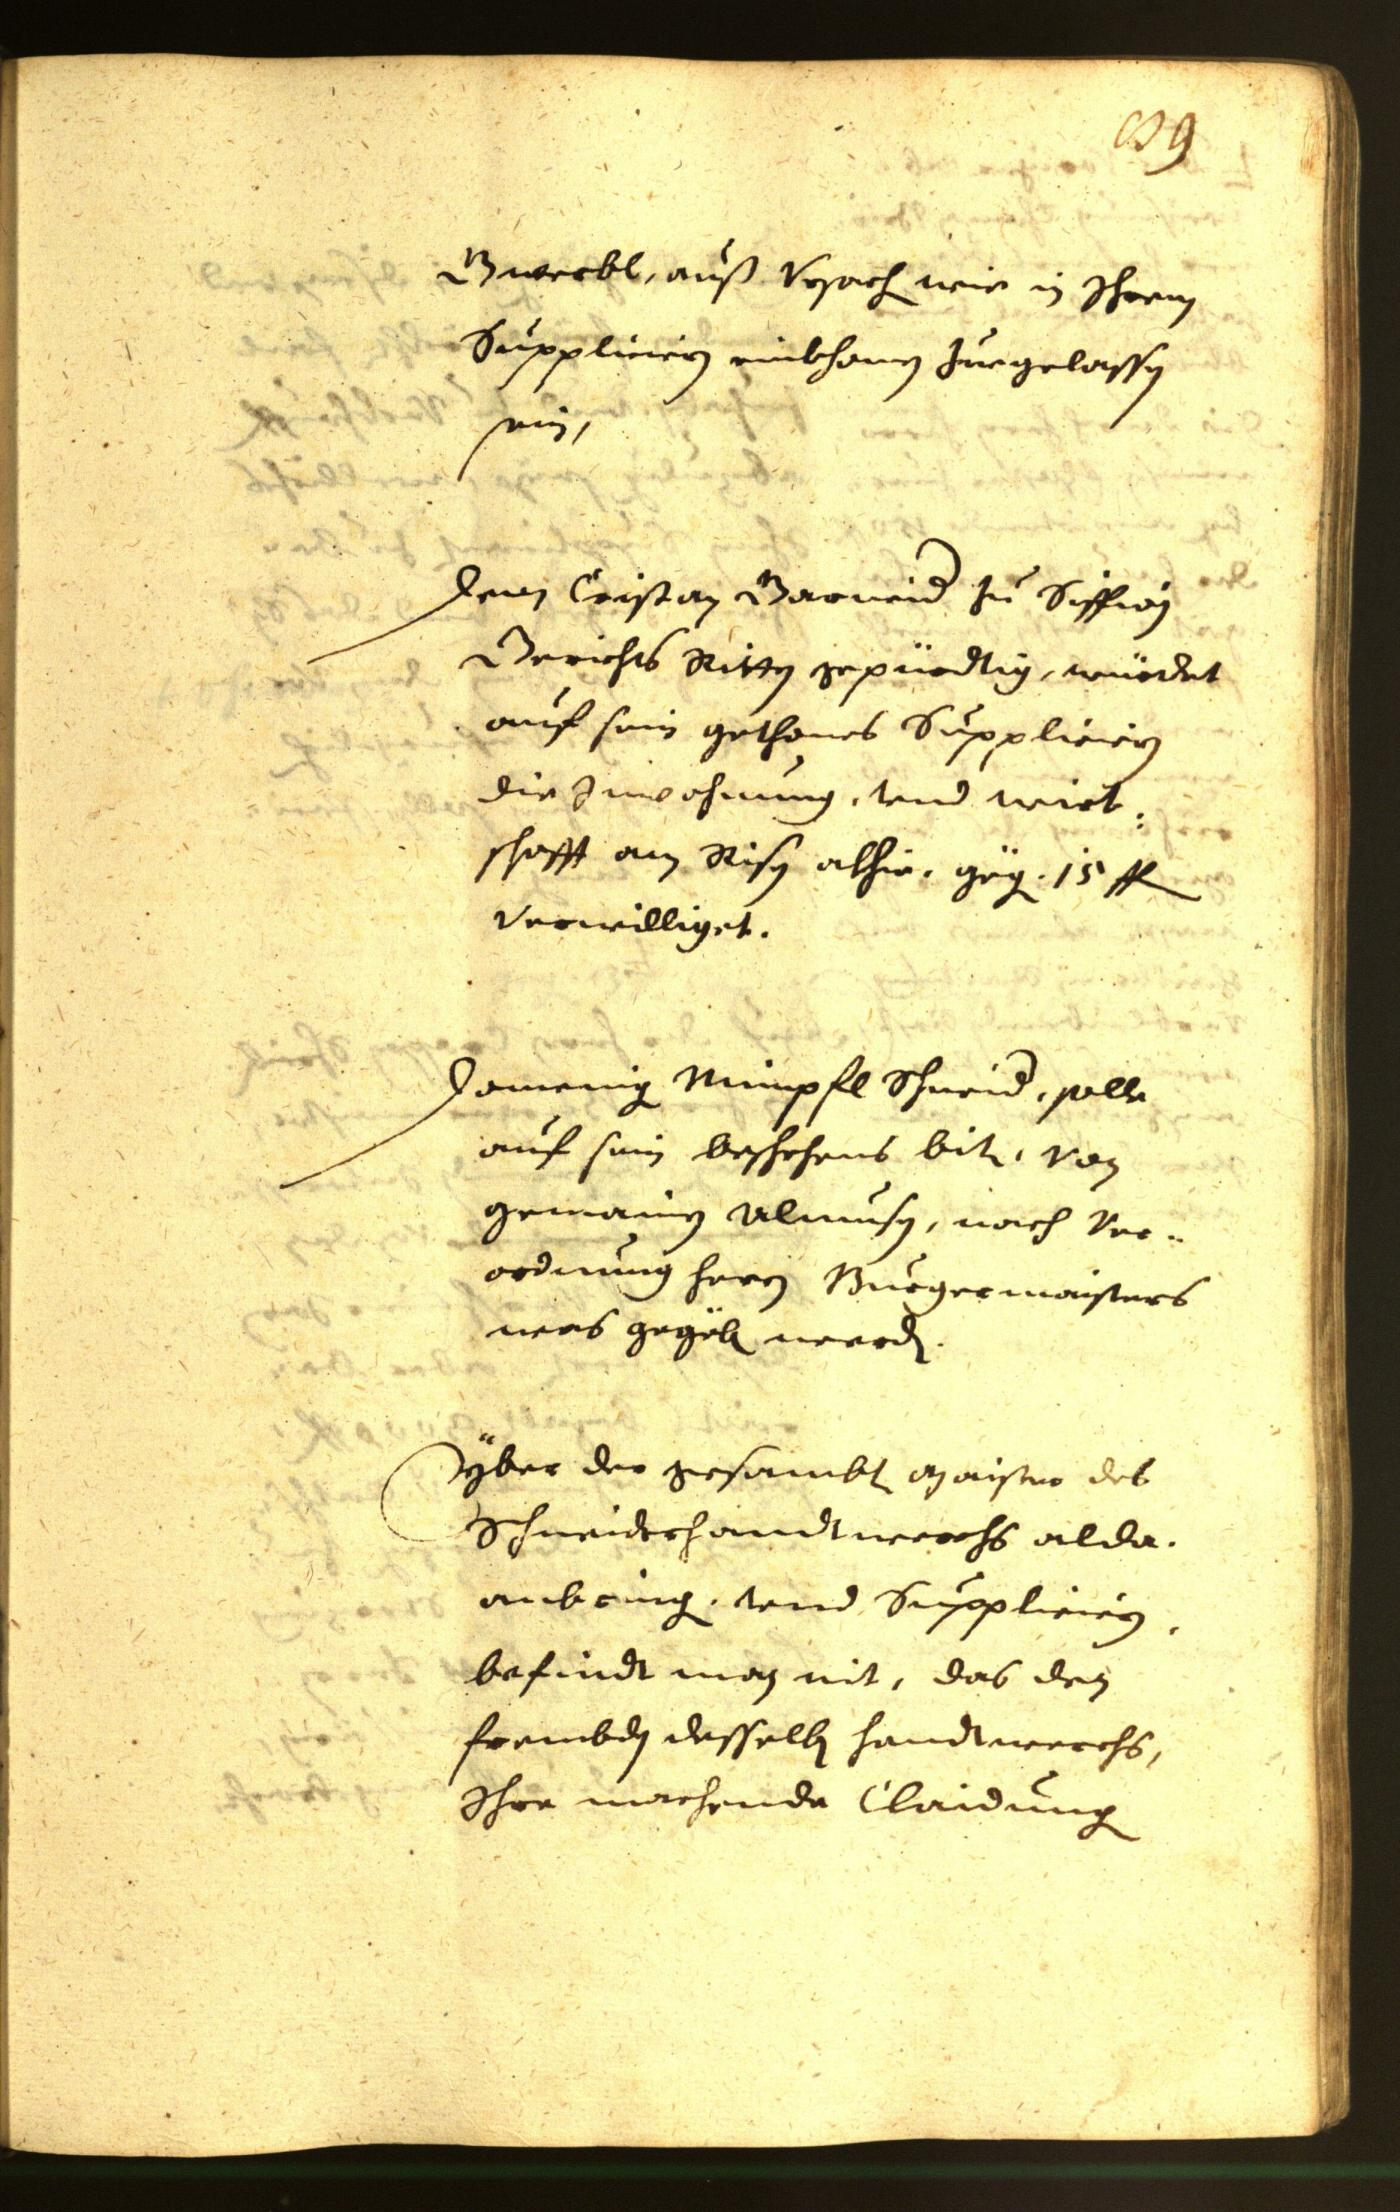 Gwerbl, auß Vrsach wie in Ihrem
Supplicien einkhomen zuegelassen
sein,
Dem Cristan Barneid zu Siffian
Gerichts Ritten gepürdtig, würdet
auf sein gethanes Supplicien
die Inwohnung, vnd wirt:
schafft am Risen alhie, gegen 15 fl
verwilliget.
Domenig Mimpfl Schneider, solle
auf sein beschehens bit, von
gemainen Almusen, nach Ver-
ordnung herrn Burgermaisters
was gegeben werden.
Yber der gesambten Maister des
Schneiderhandtwerchs alda
anbringen vnd Supplicien,
befindt man nit, das den
frembden desselben handtwerchs,
Ihre machende Claidung